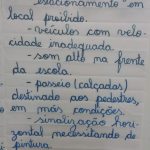 estacionamento" em
local proibido.
- veículos com velo-
cidade inadequada.
- som alto na frente
da escola.
- passeio (calçadas)
destinado aos pedestres,
em más condições.
- sinalização hori-
zontal necessitando de
pintura.